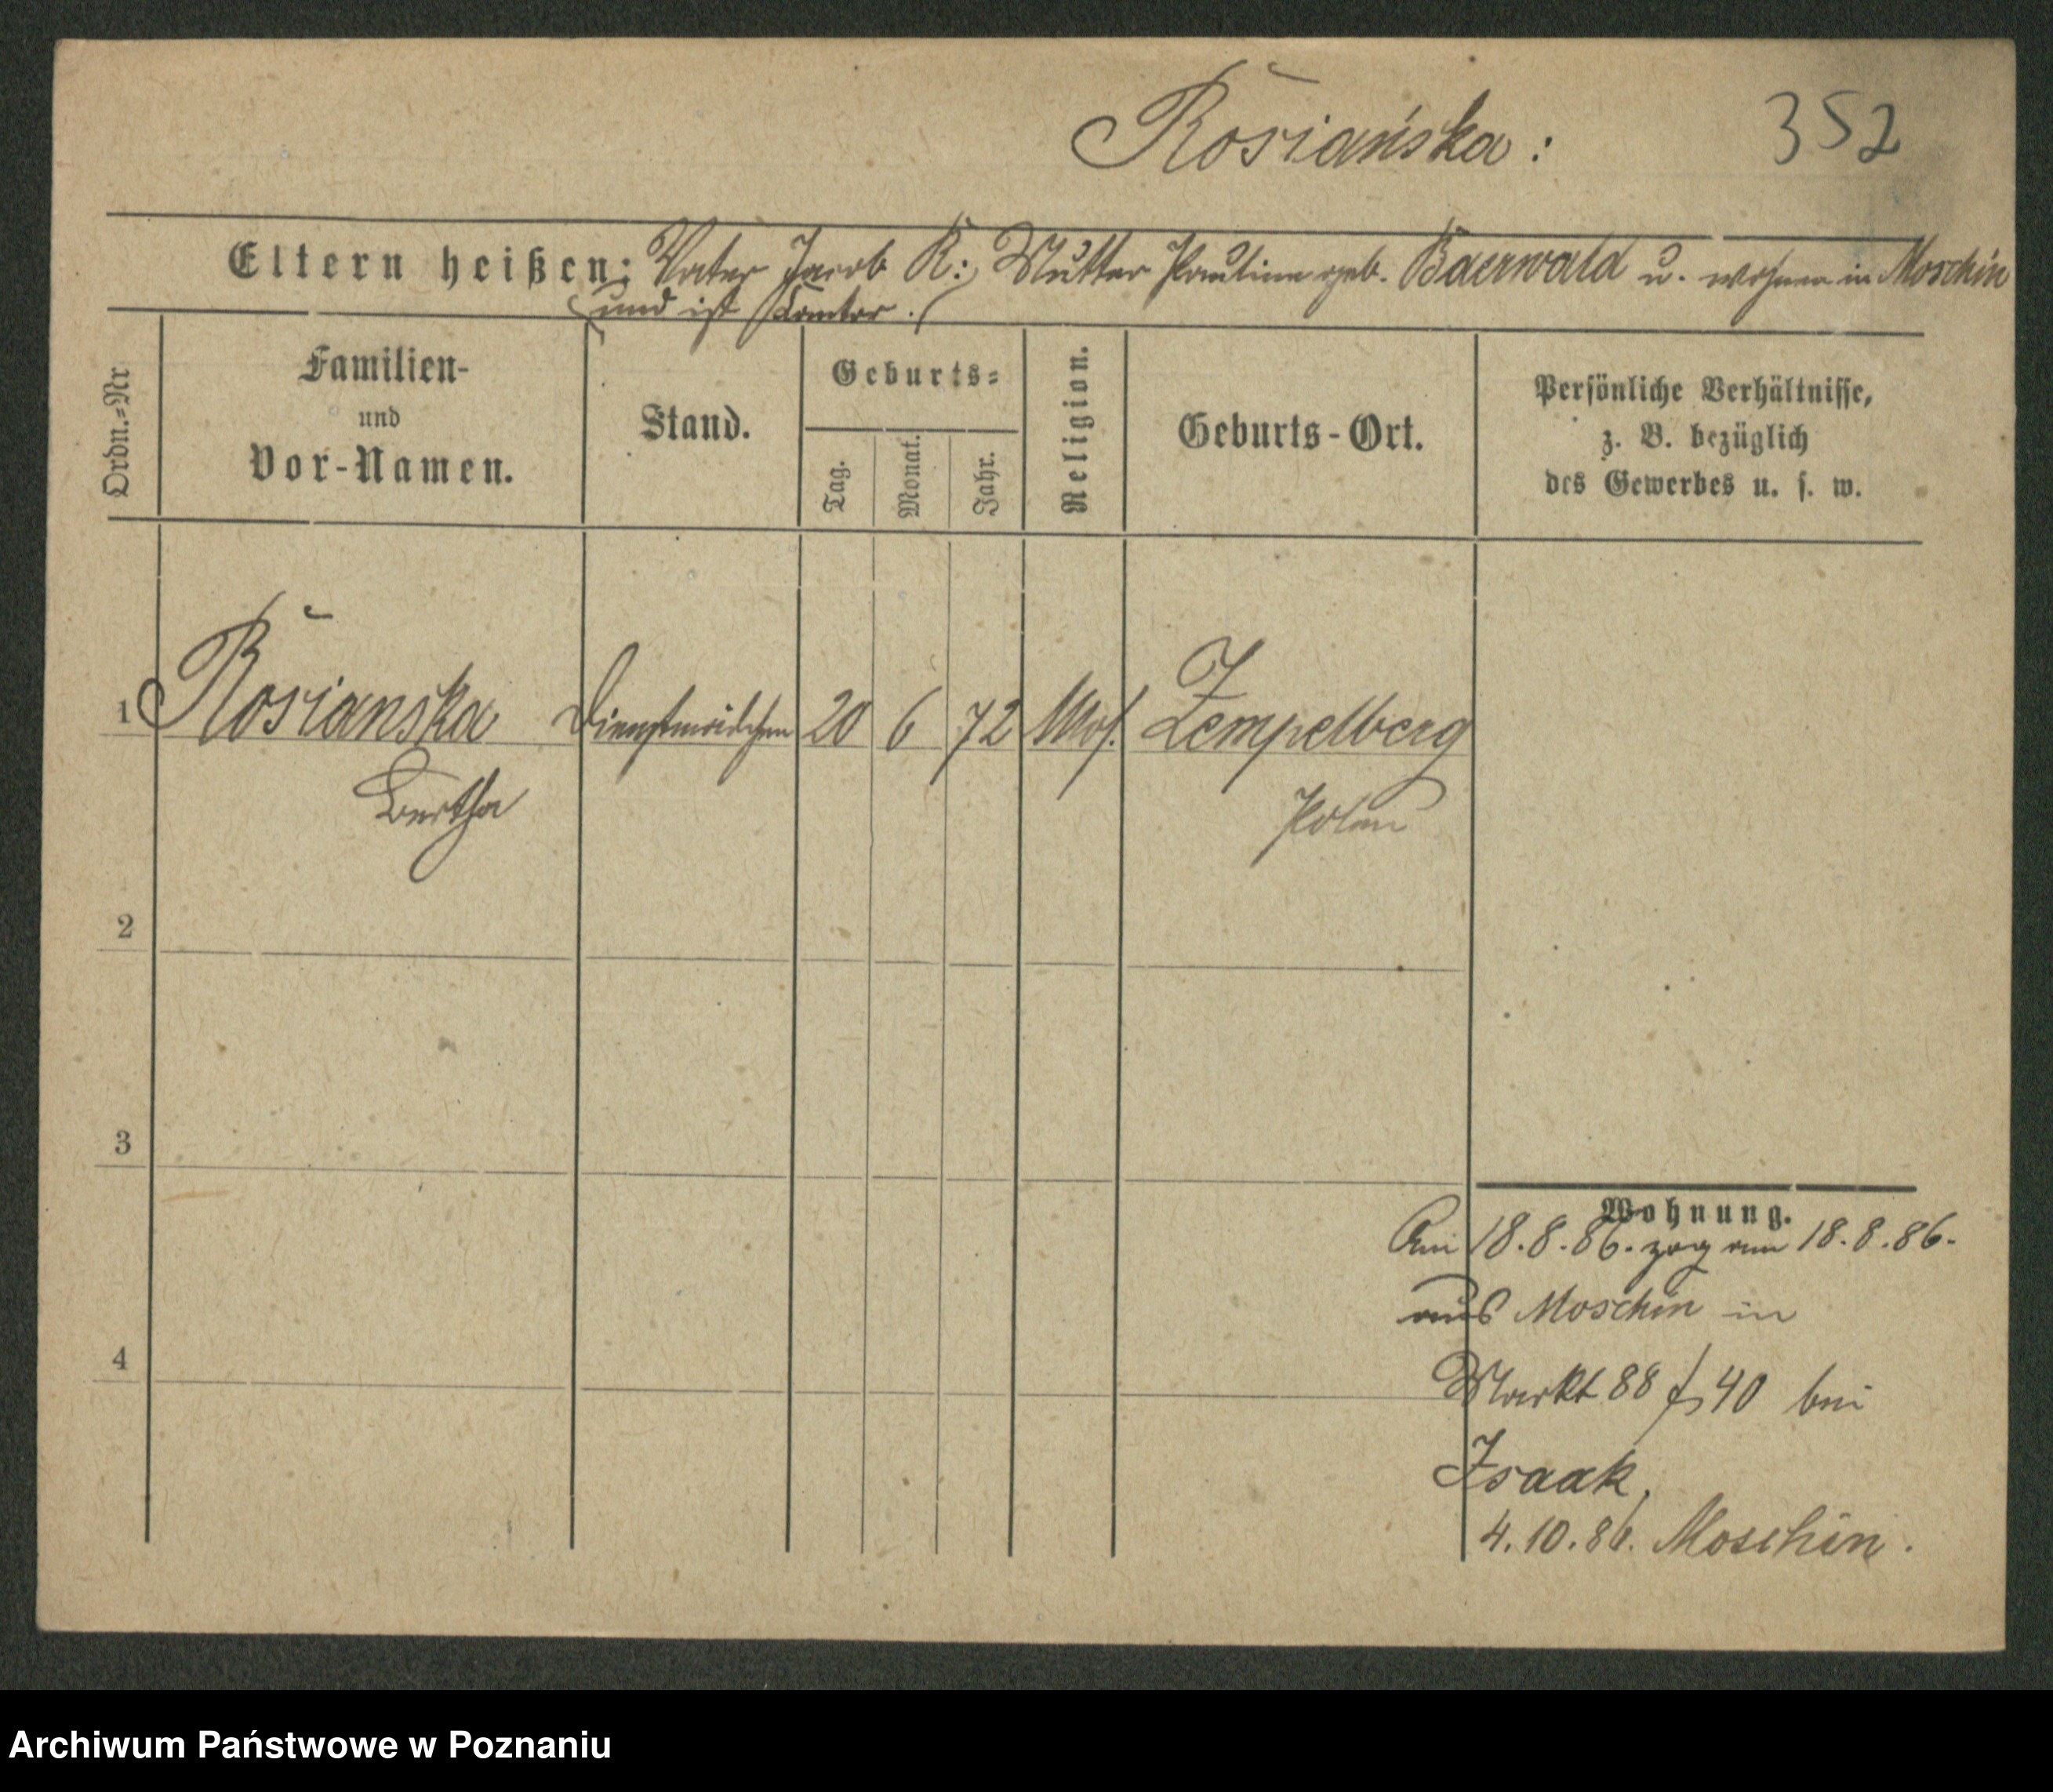 Rosiańska: 352
Eltern heißen: Vater Jacob R: Mutter Pauline geb. Baerwald u. wohnen in Moschin
(und ist Kantor.)
Ordn.=Nr
Familien-
und
Vor-Namen.
Stand.
Geburts=
Tag.
Monat.
Jahr.
Religion.
Geburts-Ort.
Persönliche Verhältnisse,
z. B. bezüglich
des Gewerbes u. s. w.
1 Rosianska Dienstmädchen 20 6 72 Mos. Zempelberg
Bertha Polen
2
3
4
Wohnung.
Am 18.8.86. zog am 18.8.86.
aus Moschin in
Markt 88 40 bei
Isaak,
4.10.86. Moschin.
Archiwum Państwowe w Poznaniu